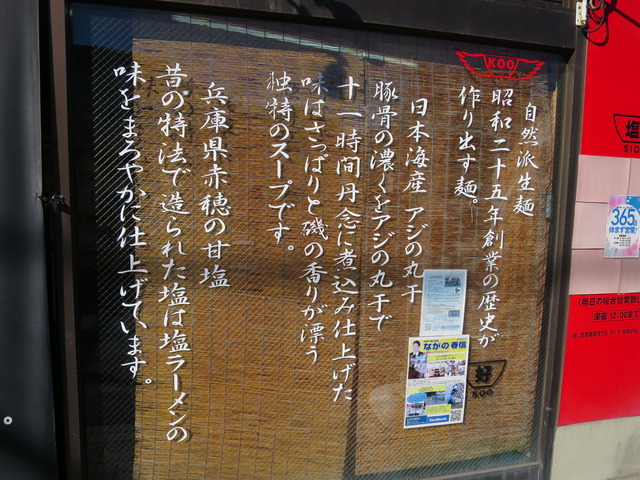 KOO
自然派生麺
昭和二十五年創業の歴史が
作り出す麺。
日本海産 アジの丸干
豚骨の濃くをアジの丸干で
十一時間丹念に煮込み仕上げた
味はさっぱりと磯の香りが漂う
独特のスープです。
兵庫県赤穂の甘塩
昔の特法で造られた塩は塩ラーメンの
味をまろやかに仕上げています。
ながの春信
好
KOO
塩
365
休まず営業!
深夜12:00まで